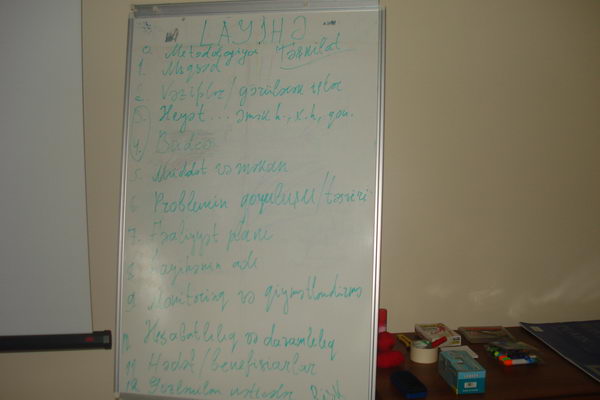 LAYİHƏ
0. Metodologiya Təşkilat
1. Məqsəd
2. Vəzifələr/görüləcək işlər
3. Heyət... əmək h., x.h., qon.
4. Büdcə
5. Müddət və məkan
6. Problemin qoyuluşu/təsviri
7. Fəaliyyət planı
8. Layihənin adı
9. Monitorinq və qiymətləndirmə
Hesabatlılıq və davamlılıq
11. Hədəf/Benefisiarlar
12. Gözlənilən nəticələr Risk